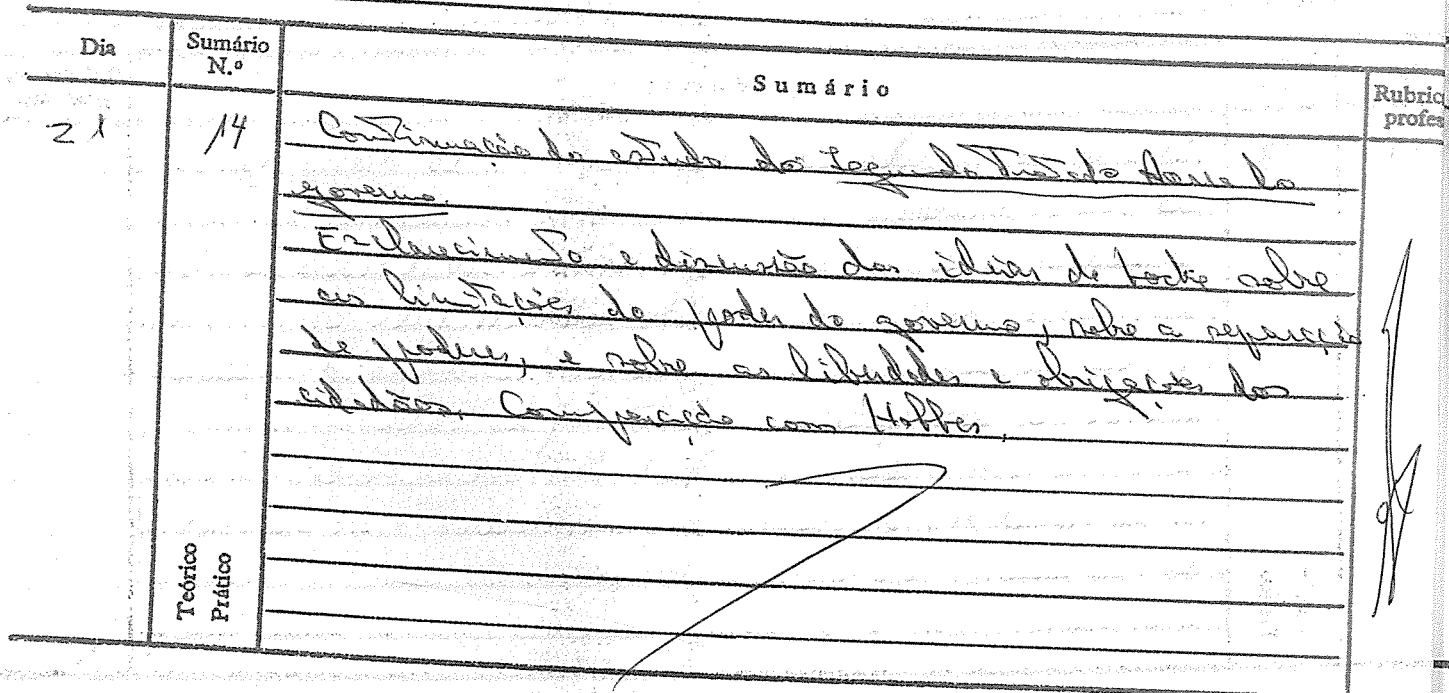 Dia
Sumário
N.º
Sumário
Rubric
profes
21
14
Continuação do estudo do Segundo Tratado do
governo.
Esclarecimento e discussão das ideias de Locke sobre
as limitações do poder do governo, sobre a separação
de poderes, e sobre as liberdades e obrigações dos
cidadãos. Comparação com Hobbes.
Teórico
Prático